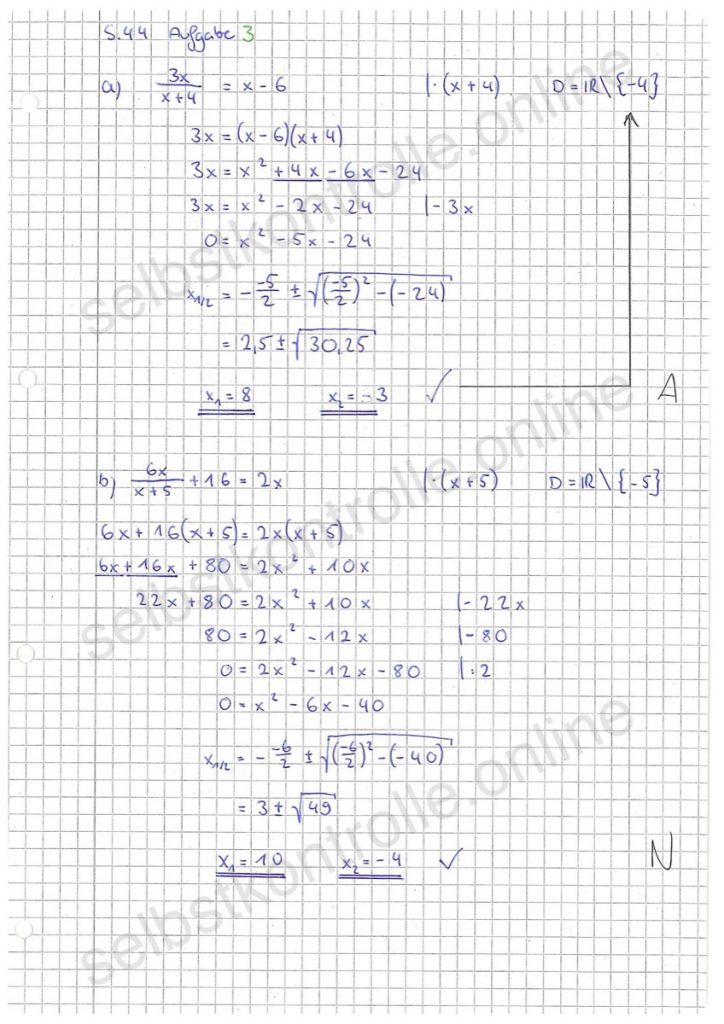 S.44 Aufgabe 3
a) 3x/(x+4) = x - 6 |·(x+4) D = ℝ\{-4}
3x = (x-6)(x+4)
3x = x² + 4x - 6x - 24
3x = x² - 2x - 24 |- 3x
0 = x² - 5x - 24
x₁/₂ = - -5/2 ± √((-5/2)² - (-24))
= 2,5 ± √30,25
x₁ = 8 x₂ = -3 ✓ A
b) 6x/(x+5) + 16 = 2x |·(x+5) D = ℝ\{-5}
6x + 16(x+5) = 2x(x+5)
6x + 16x + 80 = 2x² + 10x
22x + 80 = 2x² + 10x |- 22x
80 = 2x² - 12x |- 80
0 = 2x² - 12x - 80 |:2
0 = x² - 6x - 40
x₁/₂ = - -6/2 ± √((-6/2)² - (-40))
= 3 ± √49
x₁ = 10 x₂ = -4 ✓ N
selbstkontrolle.online
selbstkontrolle.online
selbstkontrolle.online